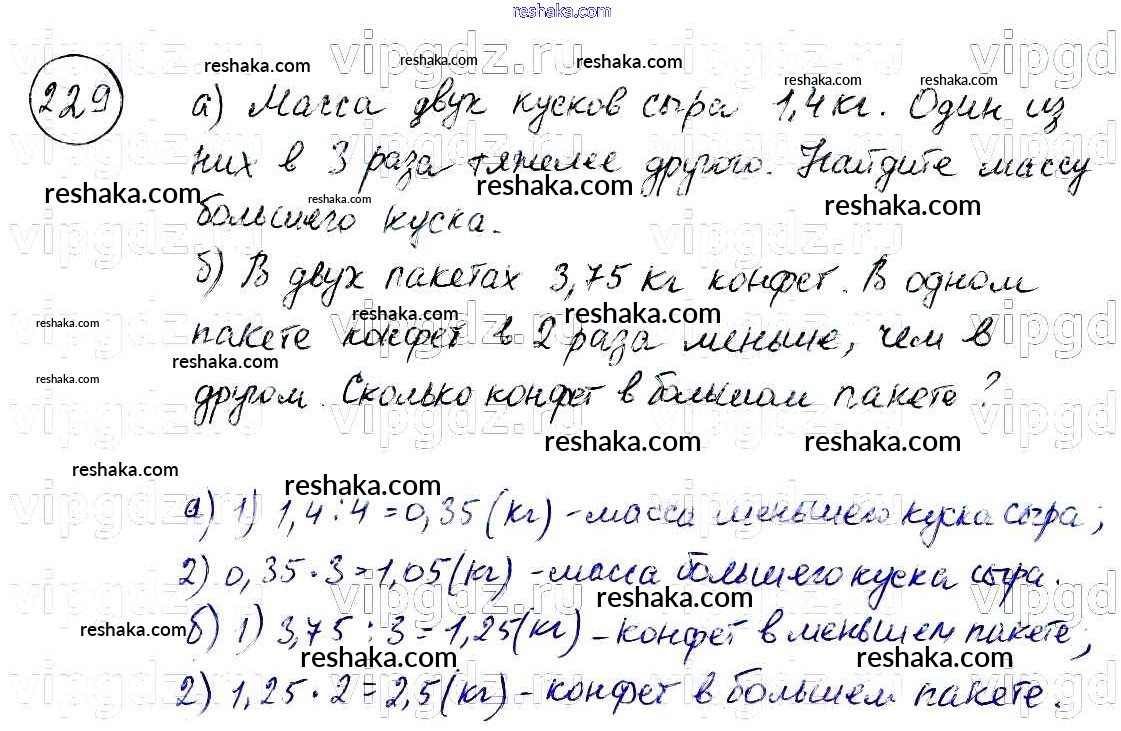 reshaka.com
229
а) Масса двух кусков сыра 1,4 кг. Один из
них в 3 раза тяжелее другого. Найдите массу
большего куска.
б) В двух пакетах 3,75 кг конфет. В одном
пакете конфет в 2 раза меньше, чем в
другом. Сколько конфет в большом пакете?
а) 1) 1,4 : 4 = 0,35 (кг) - масса меньшего куска сыра;
2) 0,35 · 3 = 1,05 (кг) - масса большего куска сыра.
б) 1) 3,75 : 3 = 1,25 (кг) - конфет в меньшем пакете;
2) 1,25 · 2 = 2,5 (кг) - конфет в большем пакете.